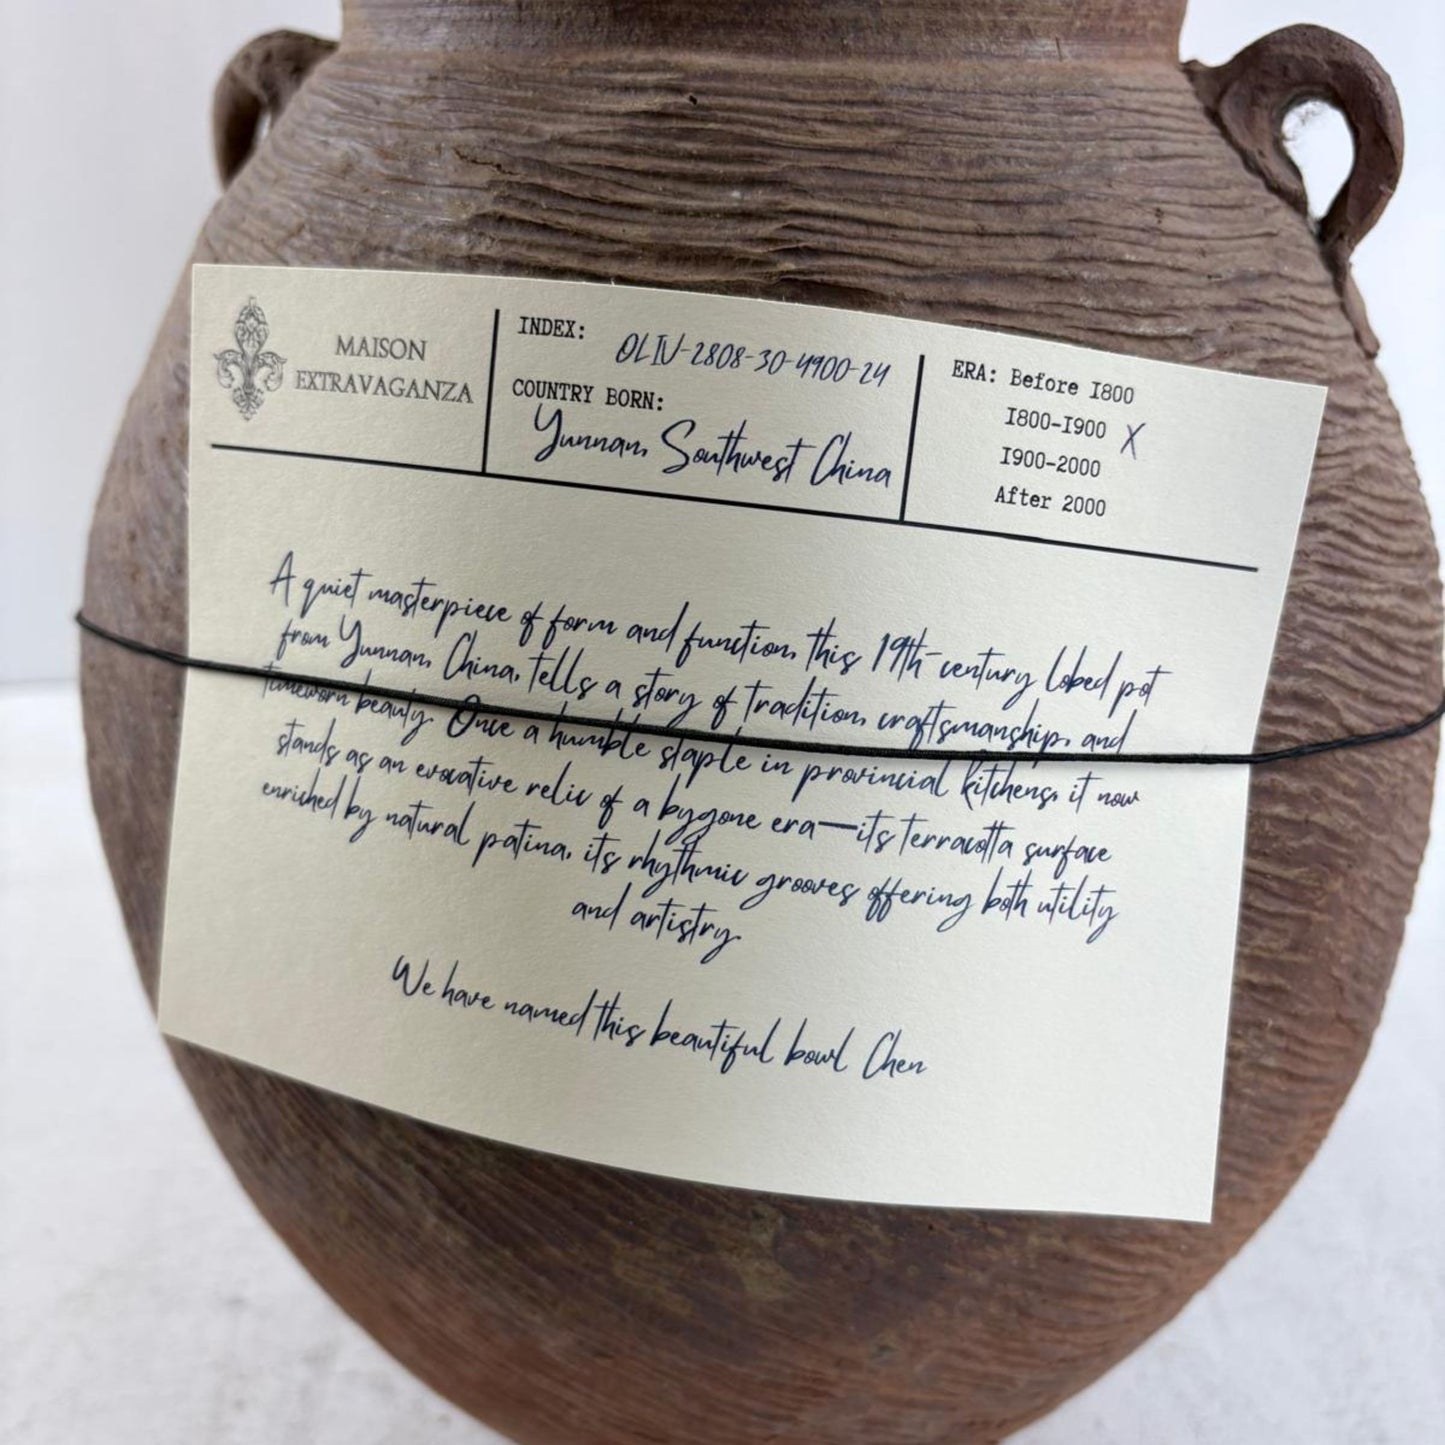 MAISON
EXTRAVAGANZA
INDEX: OLIV-2808-30-4900-24
COUNTRY BORN:
Yunnan, Southwest China
ERA: Before 1800
1800-1900 X
1900-2000
After 2000
A quiet masterpiece of form and function, this 19th-century lobed pot
from Yunnan, China, tells a story of tradition, craftsmanship, and
timeworn beauty. Once a humble staple in provincial kitchens, it now
stands as an evocative relic of a bygone era—its terracotta surface
enriched by natural patina, its rhythmic grooves offering both utility
and artistry.
We have named this beautiful bowl Chen